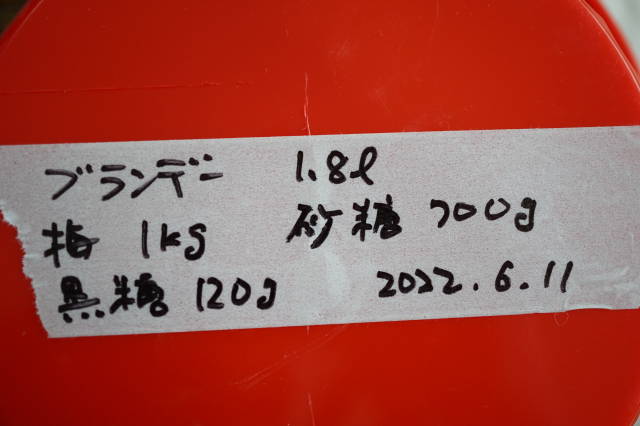 ブランデー 1.8ℓ
梅 1kg 砂糖 700g
黒糖 120g 2022.6.11